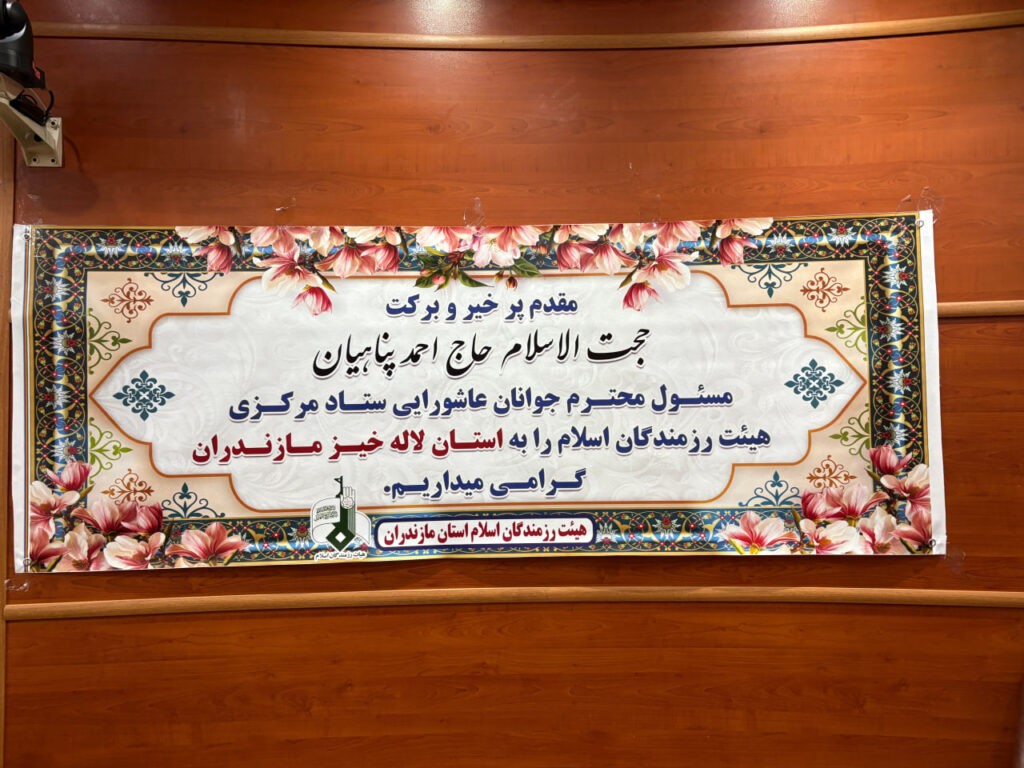 مقدم پر خیر و برکت
حجت الاسلام حاج احمد پناهیان
مسئول محترم جوانان عاشورایی ستاد مرکزی
هیئت رزمندگان اسلام را به استان لاله خیز مازندران
گرامی میداریم.
هیئت رزمندگان اسلام استان مازندران
هیئت رزمندگان اسلام